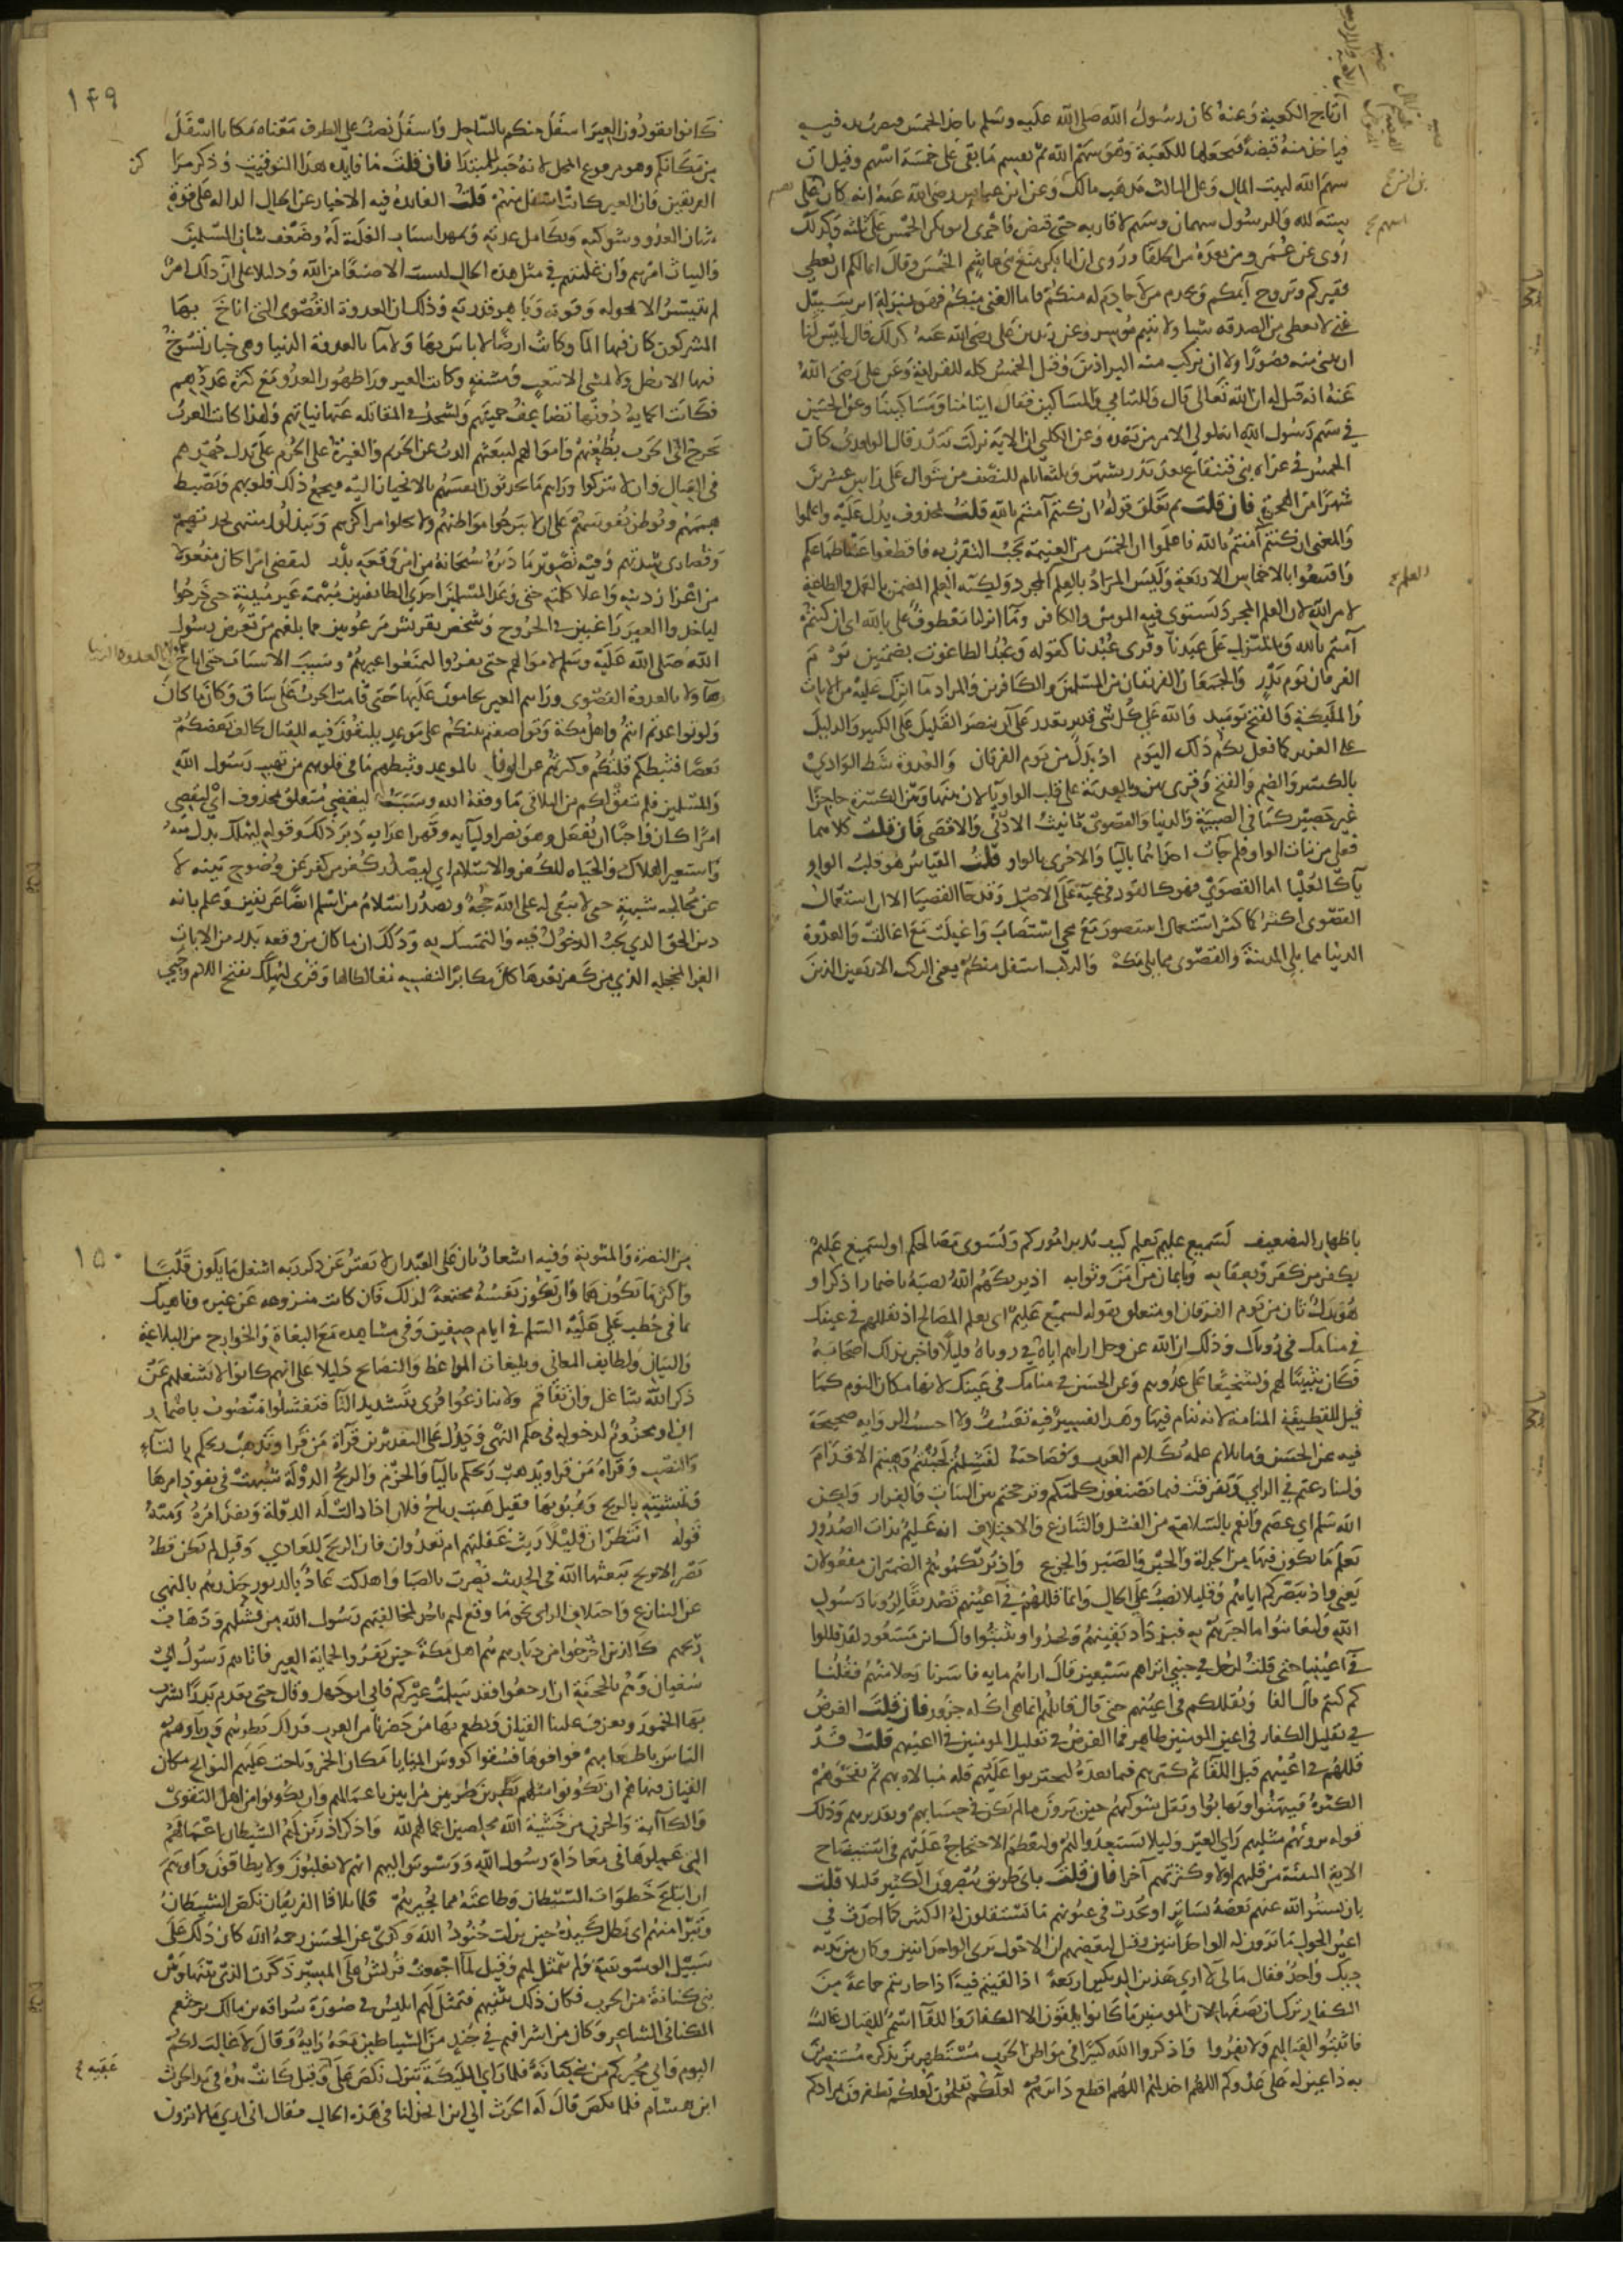 ارتاج الكعبة وعنه كان رسول الله صلى الله عليه وسلم ياخذ الخمس فيضرب يده فيه
فياخذ منه قبضة فيجعلها للكعبة وهو سهم الله ثم يقسم ما بقى على خمسة اسهم وقيل ان
سهم الله لبيت المال وعلى الثالث مذهب مالك وعن ابن عباس رضى الله عنه انه كان على
ستة لله وللرسول سهمان وسهم لاقاربه حتى قبض فاجرى ابو بكر الخمس على ثلثة وكذلك
روى عن عمر ومن بعده من الخلفا وروى ان ابا بكر منع بنى هاشم الخمس وقال انما لكم ان يعطى
فقيركم وتزوج ايمكم ويخدم من لا خادم له منكم فاما الغنى منكم فهو بمنزلة ابن سبيل
غنى لا يعطى من الصدقة شيا ولا يتيم موسر وعن زيد بن على رضى الله عنه كذلك قال ليس لنا
ان نبنى منه قصورا ولا ان نركب منه البراذين وقيل الخمس كله للقرابة وعن على رضى الله
عنه انه قيل له ان الله تعالى قال واليتامى والمساكين فقال ايتامنا ومساكيننا وعن الحسن
فى سهم رسول الله انه لولى الامر من بعده وعن الكلبى ان الاية نزلت ببدر قال الواقدى كان
الخمس فى غزاة بنى قينقاع بعد بدر بشهر وثلثة ايام للنصف من شوال على راس عشرين
شهرا من الهجرة فان قلت بم تعلق قوله ان كنتم آمنتم بالله قلت بمحذوف يدل عليه واعلموا
والمعنى ان كنتم آمنتم بالله فاعلموا ان الخمس من الغنيمة يجب التقرب به فاقطعوا عنه اطماعكم
واقتنعوا بالاخماس الاربعة وليس المراد بالعلم المجرد ولكنه العلم المضمن بالعمل والطاعة
لامر الله لان العلم المجرد يستوى فيه المومن والكافر وما انزلنا معطوف على بالله اى ان كنتم
آمنتم بالله وبالمنزل على عبدنا وقرى عبدنا كقوله وعبد الطاغوت بضمتين يوم
الفرقان يوم بدر والجمعان الفريقان من المسلمين والكافرين والمراد ما انزل عليه من الايات
والمليكة والفتح يوميذ والله على كل شى قدير يقدر على ان ينصر القليل على الكثير والذليل
على العزيز كما فعل بكم ذلك اليوم اذ بدل من يوم الفرقان والعدوة شط الوادى
بالكسر والضم والفتح وقرى بهن وبالعدية على قلب الواو يا لان بينها وبين الكسرة حاجزا
غير حصين كما فى الصبية والدنيا والقصوى تانيث الادنى والاقصى فان قلت كلاهما
فعلى من بنات الواو فلم جات احداهما باليا والاخرى بالواو قلت القياس هو قلب الواو
يا كالعليا اما القصوى فهو كالقود فى مجيه على الاصل وقد جا القصيا الا ان استعمال
القصوى اكثر كما كثر استعمال استصوب مع مجى استصاب واغيلت مع اغالت والعدوة
الدنيا مما يلى المدينة والقصوى مما يلى مكة والركب اسفل منكم يعنى الركب الاربعين الذين
بن الفرج
اسهم صح
العلم صح
١٤٩
كانوا يقودون العير اسفل منكم بالساحل واسفل نصب على الظرف معناه مكانا اسفل
من مكانكم وهو مرفوع المحل لانه خبر للمبتدا فان قلت ما فايدة هذا التوقيت وذكر مراكز
الفريقين وان العير كانت اسفل منهم قلت الفايدة فيه الاخبار عن الحال الدالة على قوة
شان العدو وشوكته وتكامل عدته وتمهد اسباب الغلبة له وضعف شان المسلمين
والتياث امرهم وان غلبتهم فى مثل هذه الحال ليست الا صنعا من الله ودليلا على ان ذلك امر
لم يتيسر الا بحوله وقوته وباهر قدرته وذلك ان العدوة القصوى التى اناخ بها
المشركون كان فيها الما وكانت ارضا لا باس بها ولا ما بالعدوة الدنيا وهى خبار تسوخ
فيها الارجل ولا يمشى الا بتعب ومشقة وكانت العير ورا ظهور العدو مع كثرة عددهم
فكانت الحماية دونها تضاعف حميتهم وتشحذ فى المقاتلة عنها نياتهم ولهذا كانت العرب
تخرج الى الحرب بظعنهم واموالهم ليبعثهم الذب عن الحريم والغيرة على الحرم على بذل جهيدهم
فى القتال وان لا يتركوا وراهم ما يحدثون انفسهم بالانحياز اليه فيجمع ذلك قلوبهم ويضبط
هممهم ويوطن نفوسهم على ان لا يبرحوا مواطنهم ولا يخلوا مراكزهم ويبذلوا منتهى نجدتهم
وقصارى شدتهم وفيه تصوير ما دبره سبحانه من امر وقعة بدر ليقضى امرا كان مفعولا
من اعزاز دينه واعلا كلمته حتى وعد المسلمين احدى الطايفتين مبهمة غير مبينة حتى خرجوا
لياخذوا العير راغبين فى الخروج وشخص بقريش مرعوبين مما بلغهم من تعرض رسول
الله صلى الله عليه وسلم لاموالهم حتى نفروا ليمنعوا عيرهم وسبب الاسباب حتى اناخ
هاولا بالعدوة القصوى ورآهم العير يحامون عليها حتى قامت الحرب على ساق وكان ما كان
ولو تواعدتم انتم واهل مكة وتواضعتم بينكم على موعد يلتقون فيه للقتال لخالف بعضكم
بعضا فثبطكم قلتكم وكثرتهم عن الوفا بالموعد وثبطهم ما فى قلوبهم من تهيب رسول الله
والمسلمين فلم يتفق لكم من التلاقى ما وفقه الله وسببه ليقضى متعلق بمحذوف اى ليقضى
امرا كان واجبا ان يفعل وهو نصر اوليايه وقهر اعدايه دبر ذلك وقوله ليهلك بدل منه
واستعير الهلاك والحياة للكفر والاسلام اى ليصدر كفر من كفر عن وضوح بينة لا
عن مخالجة شبهة حتى لا يبقى له على الله حجة ويصدر اسلام من اسلم ايضا عن يقين وعلم بانه
دين الحق الذى يجب الدخول فيه والتمسك به وذلك ان ما كان من وقعة بدر من الايات
الغر المحجلة التى من كفر بعدها كان مكابرا لنفسه مغالطا لها وقرى ليهلك بفتح اللام وحيى
باظهار التضعيف لسميع عليم يعلم كيف يدبر اموركم ويسوى مصالحكم او لسميع عليم
بكفر من كفر وبعقابه وبايمان من آمن وثوابه اذ يريكهم الله نصبه باضمار اذكر او
هو بدل ثان من يوم الفرقان او متعلق بقوله لسميع عليم اى يعلم المصالح اذ يقللهم فى عينك
فى منامك فى روياك وذلك ان الله عز وجل اراهم اياه فى روياه قليلا فاخبر بذلك اصحابه
فكان تثبيتا لهم وتشجيعا على عدوهم وعن الحسن فى منامك فى عينك لانها مكان النوم كما
قيل للقطيفة المنامة لانه ينام فيها وهذا تفسير فيه تعسف ولا احسب الرواية صحيحة
فيه عن الحسن وما يلايم علمه بكلام العرب وفصاحته لفشلتم لجبنتم وهبتم الاقدام
ولتنازعتم فى الراى وتفرقت فيما تصنعون كلمتكم وترجحتم بين الثبات والفرار ولكن
الله سلم اى عصم وانعم بالسلامة من الفشل والتنازع والاختلاف انه عليم بذات الصدور
يعلم ما يكون فيها من الجراة والجبن والصبر والجزع واذ يريكموهم الضميران مفعولان
يعنى واذ يبصركم اياهم وقليلا نصب على الحال وانما قللهم فى اعينهم تصديقا لرويا رسول
الله وليعاينوا ما اخبرهم به فيزداد يقينهم ويجدوا ويثبتوا وقال ابن مسعود لقد قللوا
فى اعيننا حتى قلت لرجل فى جنبى اتراهم سبعين قال اراهم ماية فاسرنا رجلا منهم فقلنا
كم كنتم قال الفا ويقللكم فى اعينهم حتى قال قايلهم انما هى اكلة جزور فان قلت الغرض
فى تقليل الكفار فى اعين المومنين ظاهر فما الغرض فى تقليل المومنين فى اعينهم قلت قد
قللهم فى اعينهم قبل اللقا ثم كثرهم فيما بعده ليجتريوا عليهم قلة مبالاة بهم ثم تفجوهم
الكثرة فيبهتوا ويهابوا وتفل شوكتهم حين يرون ما لم يكن فى حسابهم وتقديرهم وذلك
قوله يرونهم مثليهم راى العين وليلا يستعدوا لهم وليعظم الاحتجاج عليهم فى استيضاح
الاية البينة من قلتهم اولا وكثرتهم آخرا فان قلت باى طريق يبصرون الكثير قليلا قلت
بان يستر الله عنهم بعضه بساتر او يحدث فى عيونهم ما يستقلون له الكثير كما احدث فى
اعين الحول ما يرون له الواحد اثنين وقيل لبعضهم ان الاحول يرى الواحد اثنين وكان بين يديه
ديك واحد فقال ما لى لا ارى هذين الديكين اربعة اذا لقيتم فية اذا حاربتم جماعة من
الكفار ترك ان يصفها لان المومنين ما كانوا يلقون الا الكفار واللقا اسم للقتال غالب
فاثبتوا لقتالهم ولا تفروا واذكروا الله كثيرا فى مواطن الحرب مستظهرين بذكره مستنصرين
به داعين له على عدوكم اللهم اخذلهم اللهم اقطع دابرهم لعلكم تفلحون لعلكم تظفرون بمرادكم
١٥٠
من النصرة والمثوبة وفيه اشعار بان على العبد ان لا يفتر عن ذكر ربه اشغل ما يكون قلبا
واكثر ما يكون هما وان تكون نفسه مجتمعة لذلك وان كانت متوزعة عن غيره وناهيك
بما فى خطب على عليه السلم فى ايام صفين وفى مشاهده مع البغاة والخوارج من البلاغة
والبيان ولطايف المعانى وبليغات المواعظ والنصايح دليلا على انهم كانوا لا يشغلهم عن
ذكر الله شاغل وان تفاقم ولا تنازعوا قرى بتشديد التا فتفشلوا منصوب باضمار
ان او مجزوم لدخوله فى حكم النهى ويدل على التقديرين قراة من قرا وتذهب ريحكم بالتاء
والنصب وقراه من قرا ويذهب ريحكم باليا والجزم والريح الدولة شبهت فى نفوذ امرها
وتمشيته بالريح وهبوبها فقيل هبت رياح فلان اذا دالت له الدولة ونفذ امره ومنه
قوله انتظران قليلا ريث غفلتهم ام تعدوان فان الريح للعادى وقيل لم يكن قط
نصر الا بريح يبعثها الله وفى الحديث نصرت بالصبا واهلكت عاد بالدبور حذرهم بالنهى
عن التنازع واختلاف الراى نحو ما وقع لهم باحد لمخالفتهم رسول الله من فشلهم وذهاب
ريحهم كالذين خرجوا من ديارهم هم اهل مكة حين نفروا لحماية العير فاتاهم رسول ابى
سفيان وهم بالجحفة ان ارجعوا فقد سلمت عيركم فابى ابو جهل وقال حتى نقدم بدرا نشرب
بها الخمور وتعزف علينا القيان ونطعم بها من حضرنا من العرب فذلك بطرهم ورياوهم
الناس باطعامهم فوافوها فسقوا كووس المنايا مكان الخمر وناحت عليهم النوايح مكان
القيان فنهاهم ان يكونوا مثلهم بطرين طربين مرايين باعمالهم وان يكونوا من اهل التقوى
والكآبة والحزن من خشية الله مخلصين اعمالهم لله واذكر اذ زين لهم الشيطان اعمالهم
التى عملوها فى معاداة رسول الله ووسوس اليهم انهم لا يغلبون ولا يطاقون واوهمهم
ان اتباع خطوات الشيطان وطاعته مما يجيرهم فلما تلاقا الفريقان نكص الشيطان
وتبرا منهم اى بطل كيده حين نزلت جنود الله وكذى عن الحسن رحمه الله كان ذلك على
سبيل الوسوسة ولم يتمثل لهم وقيل لما اجتمعت قريش على المسير ذكرت الذى بينها وبين
بنى كنانة من الحرب فكان ذلك يثنيهم فتمثل لهم ابليس فى صورة سراقة بن مالك بن جعشم
الكنانى الشاعر وكان من اشرافهم فى جند من الشياطين معه راية وقال لا غالب لكم
اليوم وانى مجيركم من بنى كنانة فلما راى المليكة تنزل نكص على وقيل كانت يده فى يد الحرث
ابن هشام فلما نكص قال له الحرث الى اين اتخذلنا فى هذه الحال فقال انى ارى ما لا ترون
عقبيه